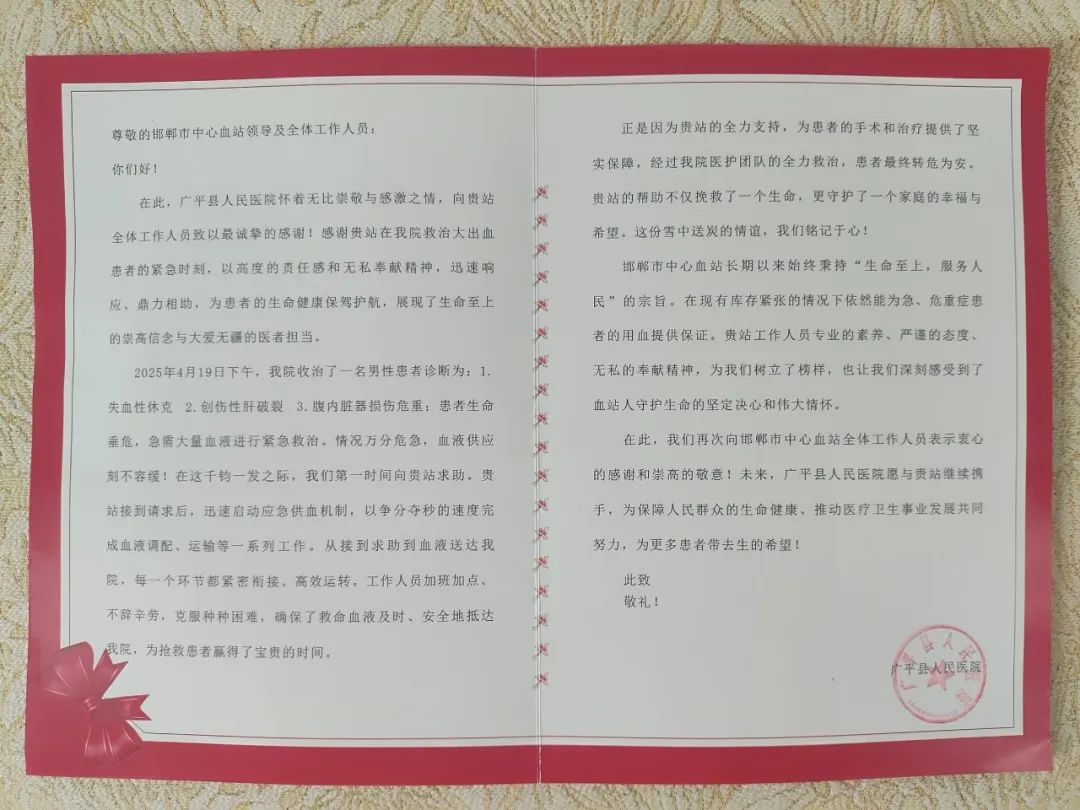 尊敬的邯郸市中心血站领导及全体工作人员：
你们好！
在此，广平县人民医院怀着无比崇敬与感激之情，向贵站
全体工作人员致以最诚挚的感谢！感谢贵站在我院救治大出血
患者的紧急时刻，以高度的责任感和无私奉献精神，迅速响
应、鼎力相助，为患者的生命健康保驾护航，展现了生命至上
的崇高信念与大爱无疆的医者担当。
2025年4月19日下午，我院收治了一名男性患者诊断为：1.
失血性休克 2.创伤性肝破裂 3.腹内脏器损伤危重；患者生命
垂危，急需大量血液进行紧急救治。情况万分危急，血液供应
刻不容缓！在这千钧一发之际，我们第一时间向贵站求助。贵
站接到请求后，迅速启动应急供血机制，以争分夺秒的速度完
成血液调配、运输等一系列工作。从接到求助到血液送达我
院，每一个环节都紧密衔接、高效运转。工作人员加班加点、
不辞辛劳，克服种种困难，确保了救命血液及时、安全地抵达
我院，为抢救患者赢得了宝贵的时间。
正是因为贵站的全力支持，为患者的手术和治疗提供了坚
实保障，经过我院医护团队的全力救治，患者最终转危为安。
贵站的帮助不仅挽救了一个生命，更守护了一个家庭的幸福与
希望。这份雪中送炭的情谊，我们铭记于心！
邯郸市中心血站长期以来始终秉持“生命至上，服务人
民”的宗旨。在现有库存紧张的情况下依然能为急、危重症患
者的用血提供保证。贵站工作人员专业的素养、严谨的态度、
无私的奉献精神，为我们树立了榜样，也让我们深刻感受到了
血站人守护生命的坚定决心和伟大情怀。
在此，我们再次向邯郸市中心血站全体工作人员表示衷心
的感谢和崇高的敬意！未来，广平县人民医院愿与贵站继续携
手，为保障人民群众的生命健康、推动医疗卫生事业发展共同
努力，为更多患者带去生的希望！
此致
敬礼！
广平县人民医院
广平县人民医院